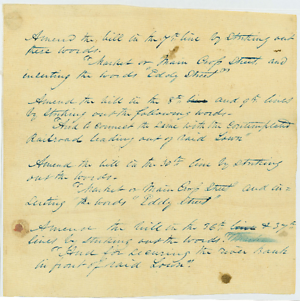 Amend the bill in the 7th line by striking out
these words.
"Market or Main Crop Street, and
inserting the words "Eddy Street"
Amend the bill in the 8th line and 9th lines
by striking out the following words.
"And to connect the same with the Contemplated
Railroad leading out of said Town"
Amend the bill in the 30th line by striking
out the words.
"Market or Main Crop Street and in-
serting the words "Eddy Street"
Amend the bill in the 36th line & 37th
lines by striking out the words.
"And for securing the river bank
in front of said Town."